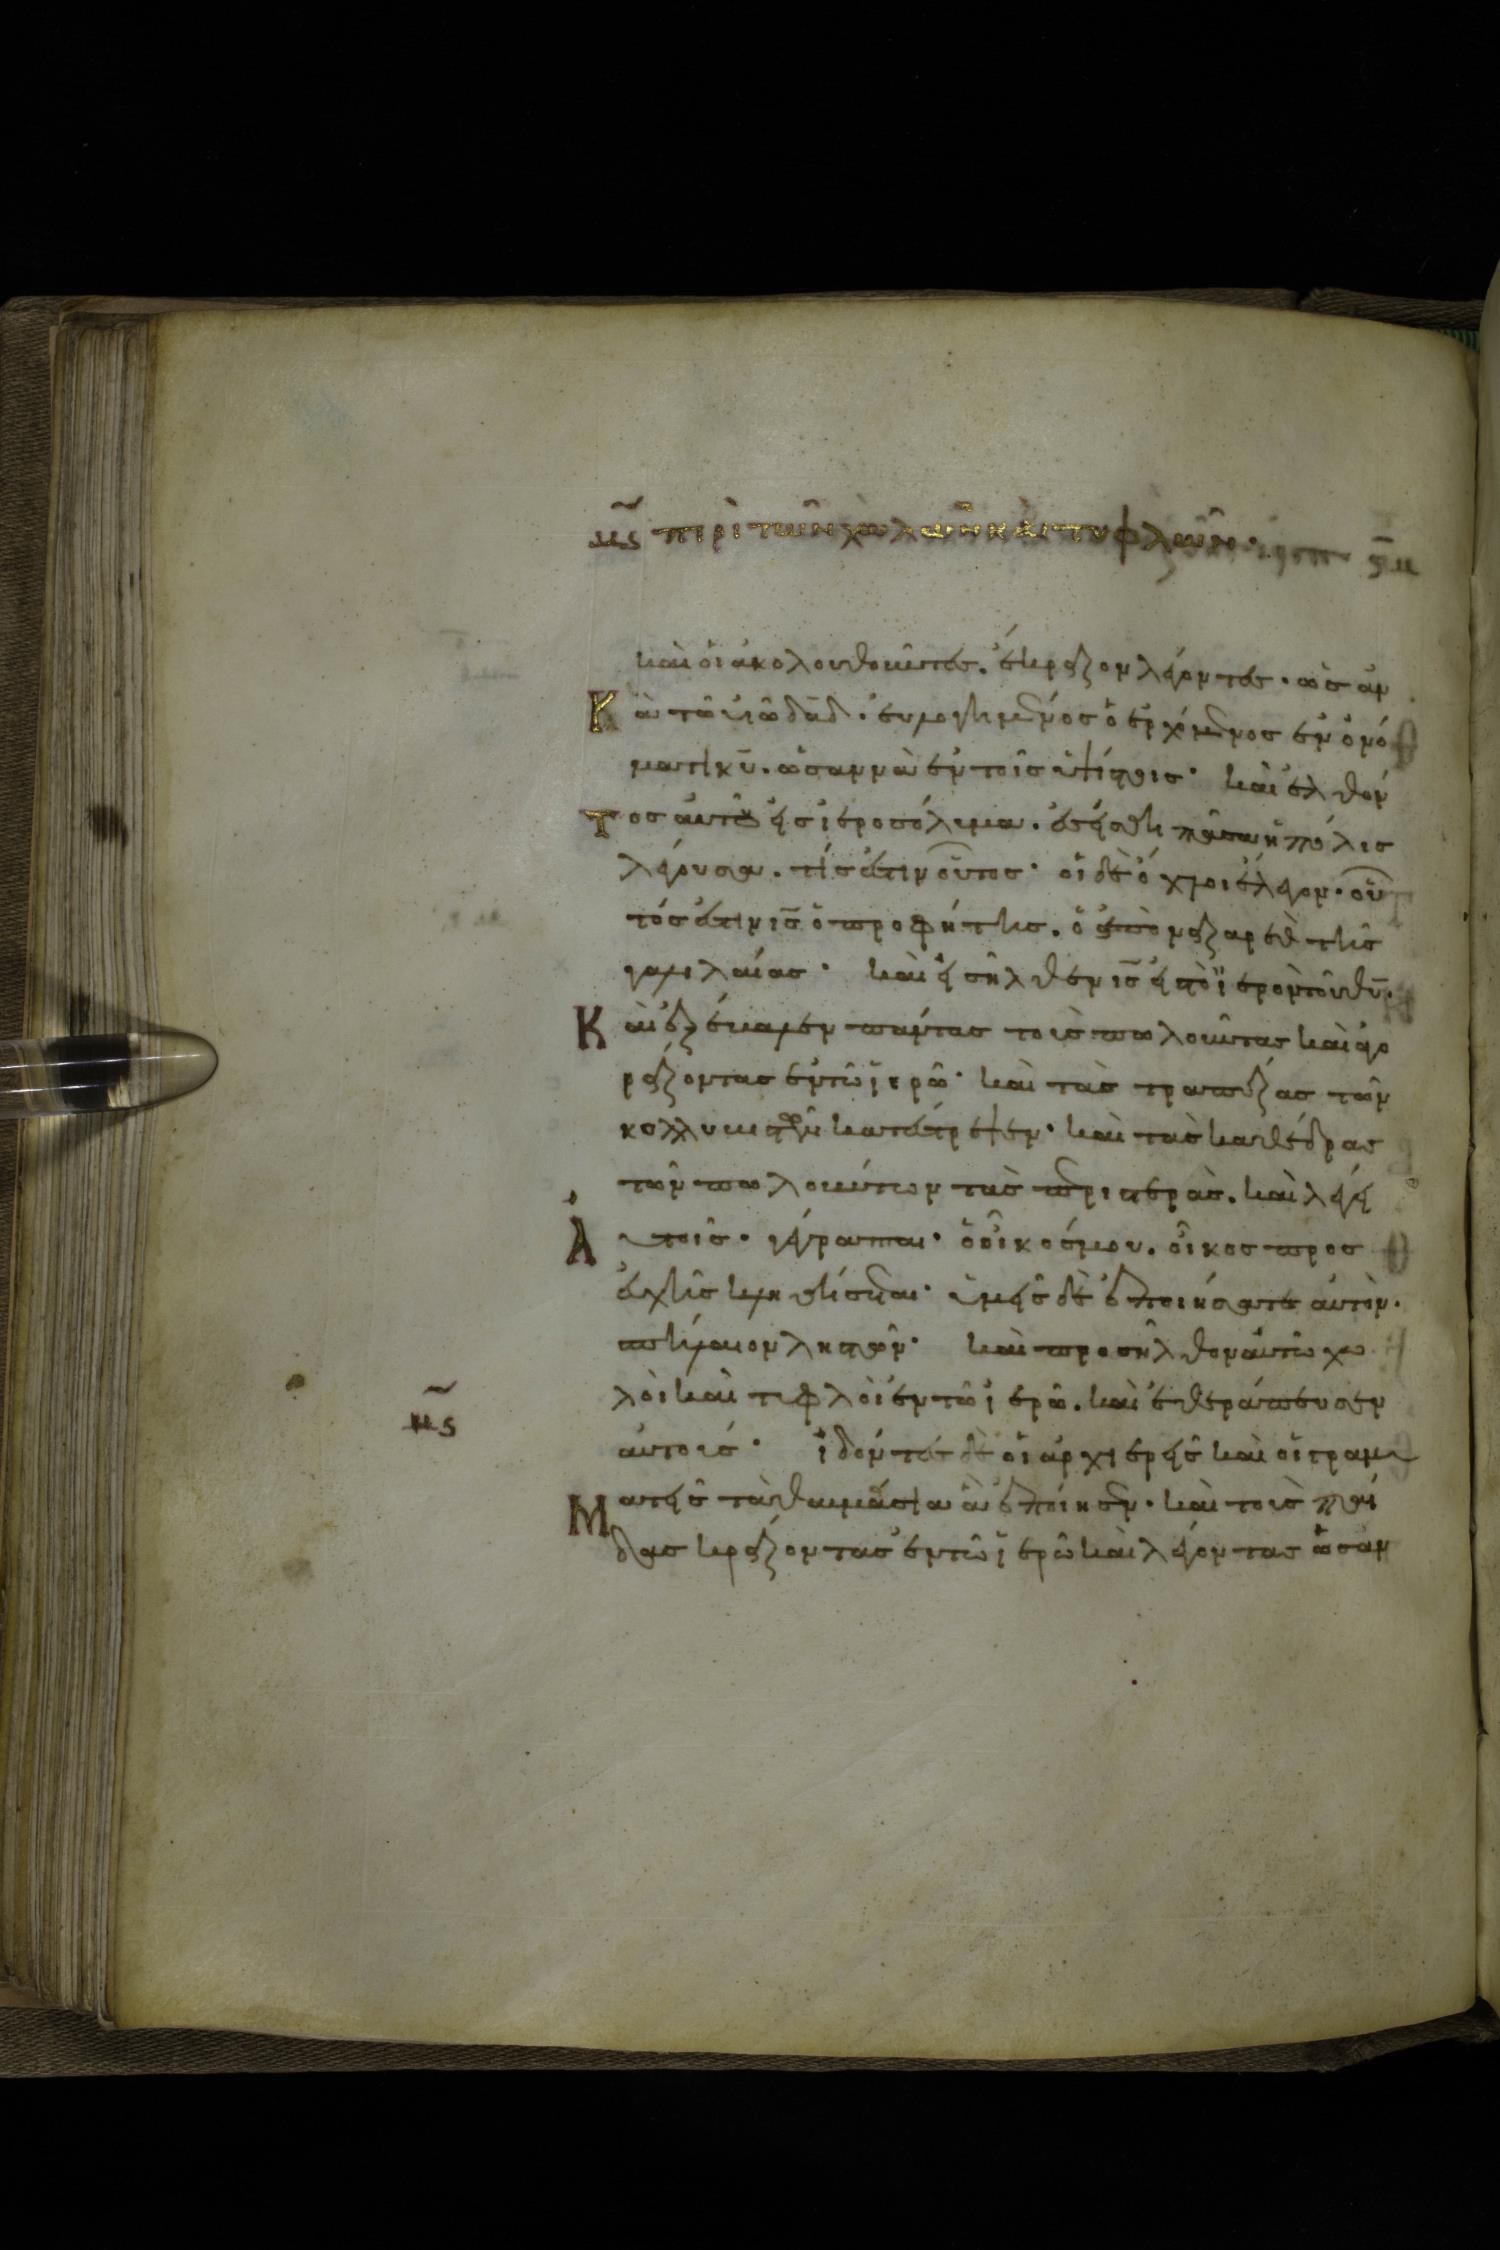 μς περὶ τῶν χωλῶν καὶ τυφλῶν·
καὶ οἱ ἀκολουθοῦντες. ἔκραζον λέγοντες· ὡς ἀν
Κὰ τῶ υἱῶ δᾱδ· εὐλογημένος ὁ ἐρχόμενος ἐν ὀνό
ματι κῡ. ὡσαννὰ ἐν τοῖς ὑψίστοις· καὶ ἐλθόν
Τος αὐτοῦ εἰς ἱεροσόλυμα. ἐσείσθη πᾶσα ἡ πόλις
λέγουσα. τίς ἐστιν οὗτος· οἱ δὲ ὄχλοι ἔλεγον. οὗ
τός ἐστιν ῑς ὁ προφήτης. ὁ ἀπὸ ναζαρὲθ τῆς
γαλιλαίας· καὶ εἰσῆλθεν ῑς εἰς τὸ ἱερὸν τοῦ θῡ.
Καὶ ἐξέβαλεν πάντας τοὺς πωλοῦντας καὶ ἀγο
ράζοντας ἐν τῶ ἱερῶ· καὶ τὰς τραπέζας τῶν
κολλυβιστῶν κατέστρεψεν· καὶ τὰς καθέδρας
τῶν πωλούντων τὰς περιστεράς. καὶ λέγει
Αὐτοῖς· γέγραπται· ὁ οἶκός μου. οἶκος προς
ευχῆς κληθήσεται· ὑμεῖς δὲ ἐποιήσατε αὐτὸν.
σπήλαιον ληστῶν· καὶ προσῆλθον αὐτῶ χω
μς λοὶ καὶ τυφλοὶ ἐν τῶ ἱερῶ. καὶ ἐθεράπευσεν
αὐτούς· ἰδόντες δὲ οἱ ἀρχιερεῖς καὶ οἱ γραμ
Ματεῖς τὰ θαυμάσια ἃ ἐποίησεν. καὶ τοὺς παῖ
δας κράζοντας ἐν τῶ ἱερῶ καὶ λέγοντας ὡσαν